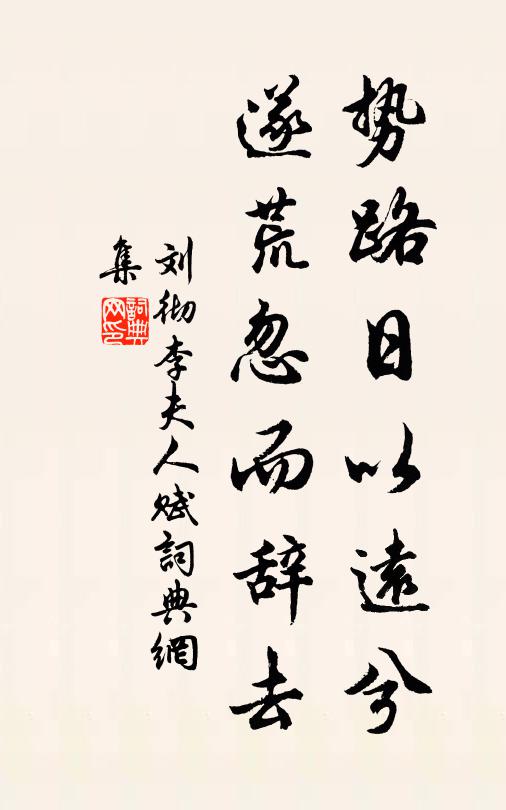 势路日以遠兮
遂荒忽而辞去
刘彻李夫人赋詞典網
集
詞典
网印